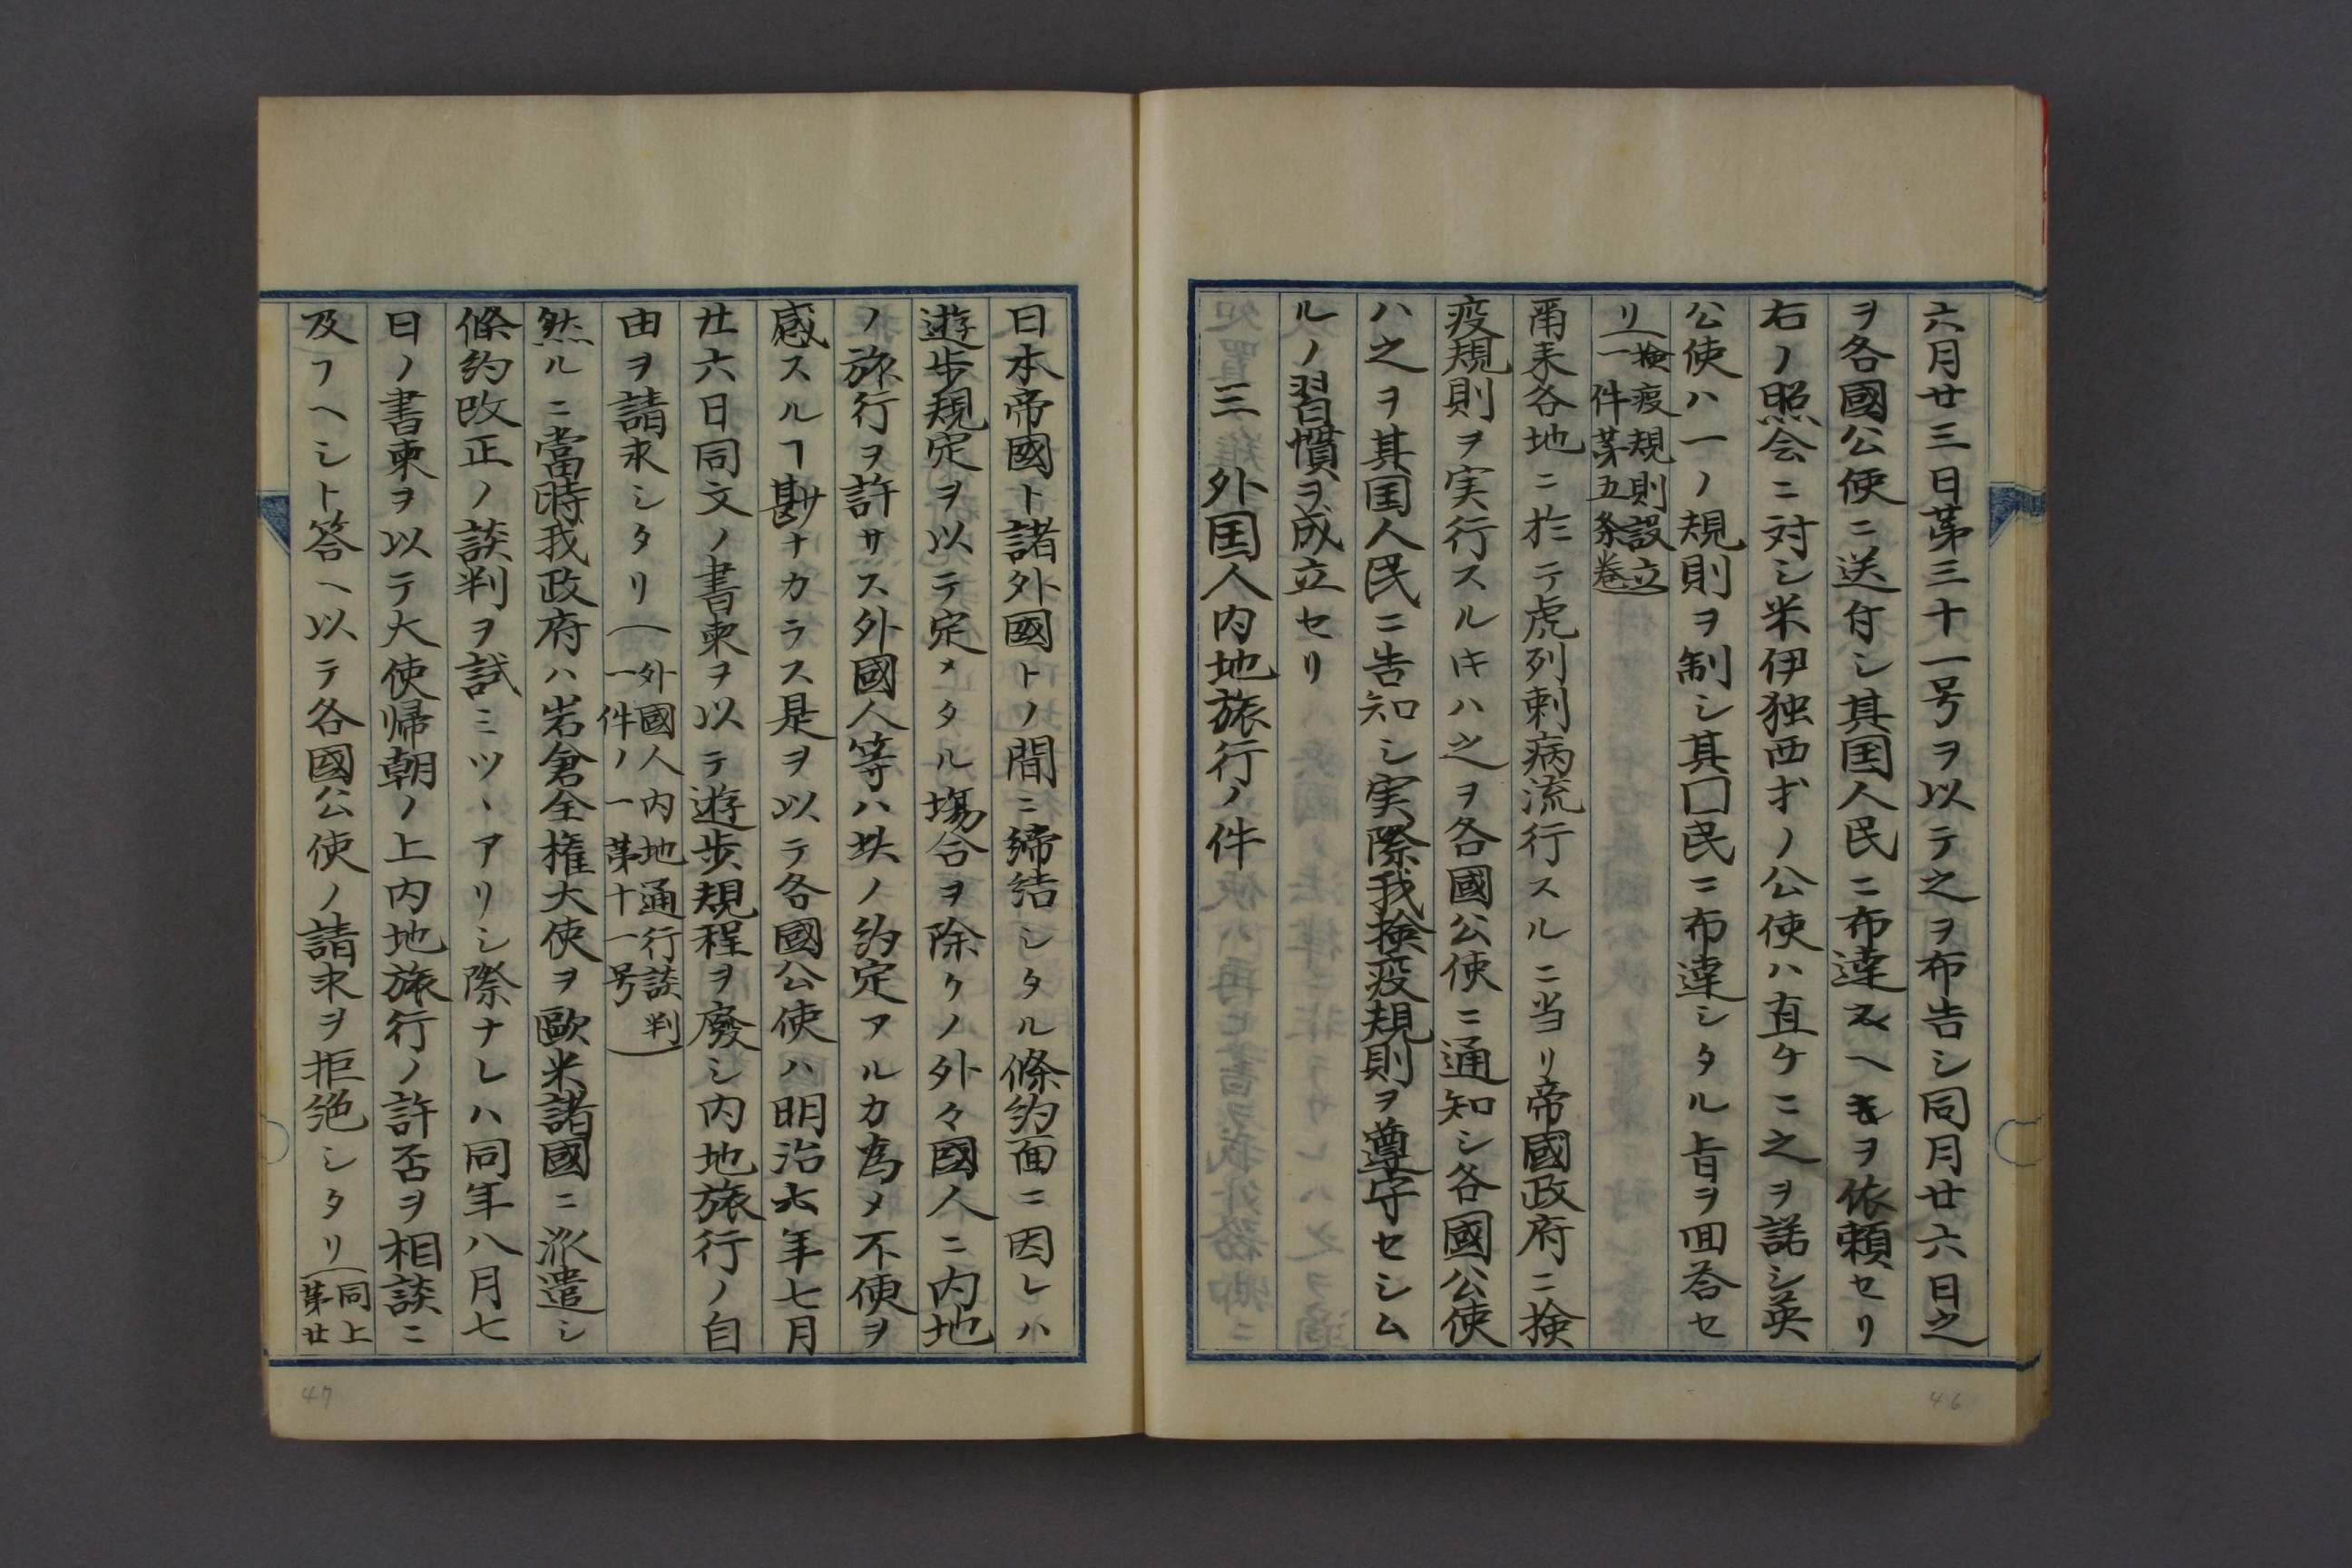 六月廿三日第三十一号ヲ以テ之ヲ布告シ同月廿六日之
ヲ各國公使ニ送付シ其国人民ニ布達スヘキヲ依頼セリ
右ノ照会ニ対シ米伊独西才ノ公使ハ直ケニ之ヲ諾シ英
公使ハ一ノ規則ヲ制シ其囗民ニ布達シタル旨ヲ回答セ
リ(検疫規則設立
一件第五条巻)
爾来各地ニ於テ虎列剌病流行スルニ当リ帝國政府ニ検
疫規則ヲ実行スルキハ之ヲ各國公使ニ通知シ各國公使
ハ之ヲ其国人民ニ告知シ実際我検疫規則ヲ遵守セシム
ルノ習慣ヲ成立セリ
三 外国人内地旅行ノ件
日本帝國ト諸外國トノ間ニ締結シタル條約面ニ因レハ
遊歩規定ヲ以テ定メタル場合ヲ除クノ外々國人ニ内地
ノ旅行ヲ許サス外國人等ハ此ノ約定アルカ為メ不便ヲ
感スルヿ尠ナカラス是ヲ以テ各國公使ハ明治六年七月
廿六日同文ノ書柬ヲ以テ遊歩規程ヲ廢シ内地旅行ノ自
由ヲ請求シタリ(外國人内地通行談判
一件ノ一第十一号)
然ルニ當時我政府ハ岩倉全権大使ヲ歐米諸國ニ派遣シ
條約改正ノ談判ヲ試ミツヽアリシ際ナレハ同年八月七
日ノ書柬ヲ以テ大使帰朝ノ上内地旅行ノ許否ヲ相談ニ
及フヘシト答ヘ以テ各國公使ノ請求ヲ拒絶シタリ(同上
第廿
46
47